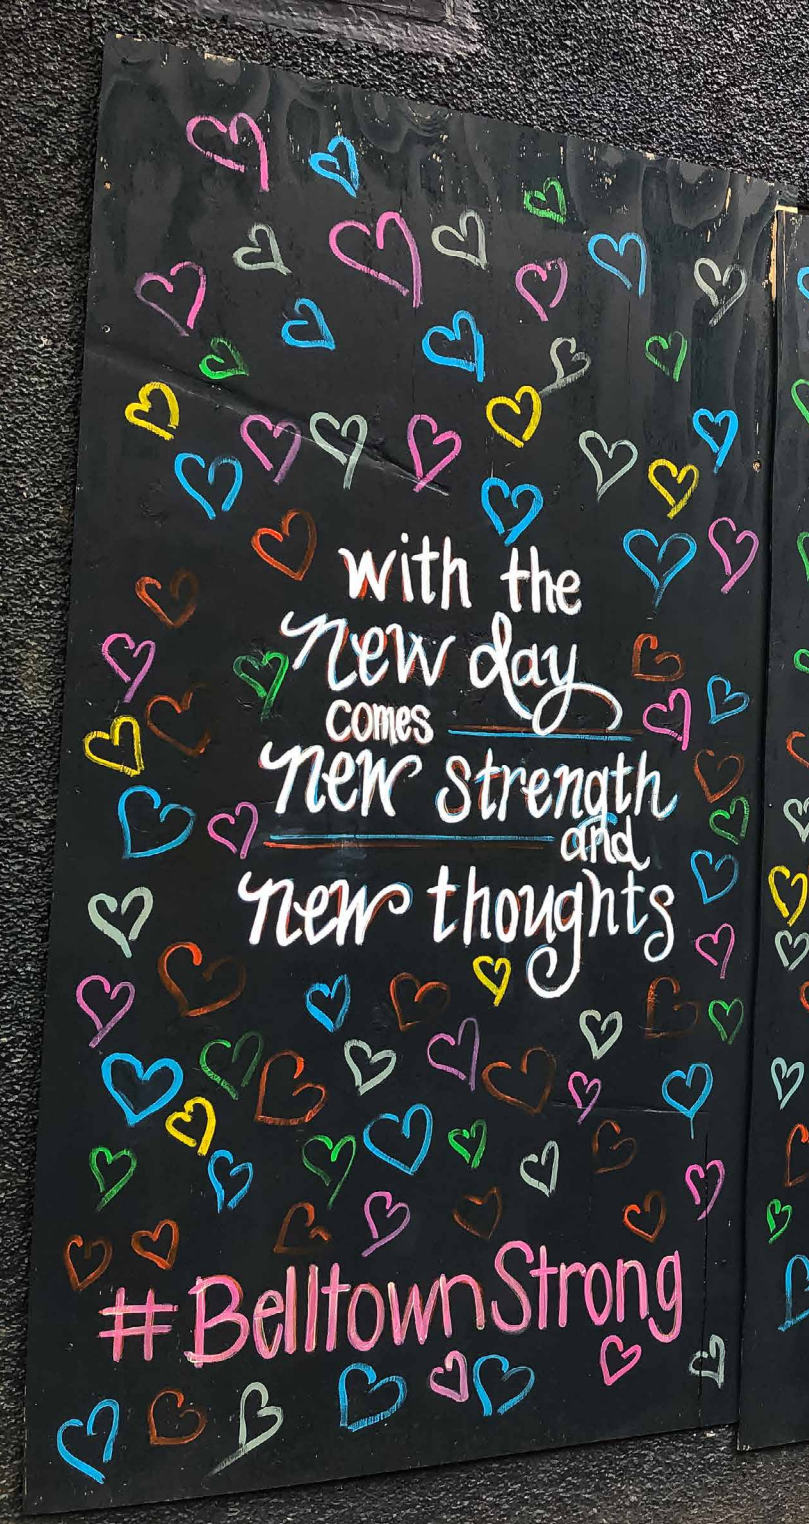 with the
new day
comes
new strength
and
new thoughts
#BelltownStrong